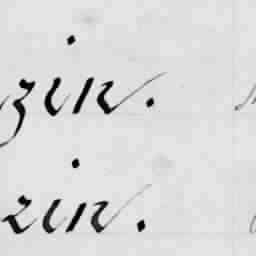 zin.
zin.